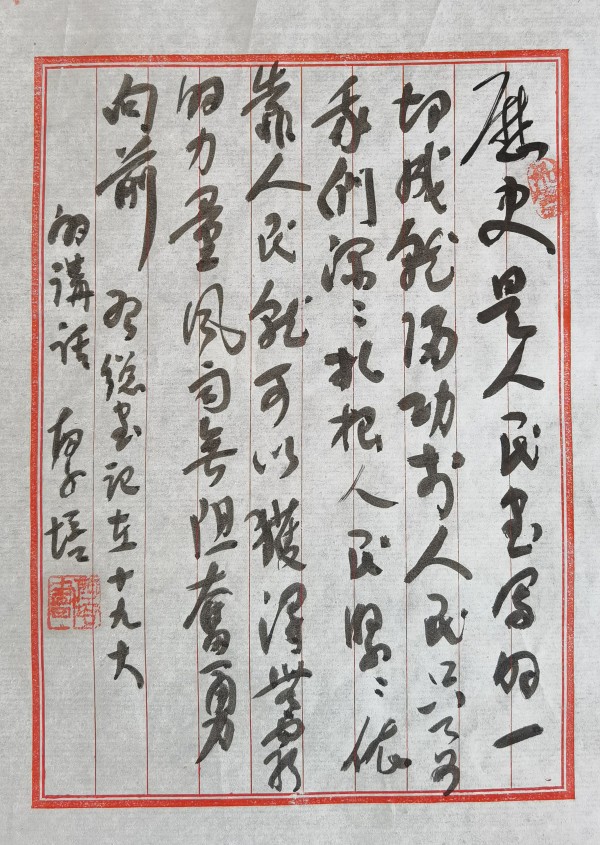 歷史是人民書寫的一
切成就歸功於人民只要
我們深〻扎根人民緊〻依
靠人民就可以獲得無窮
的力量風雨無阻奮勇
向前 習總書記在十九大
的講話 培